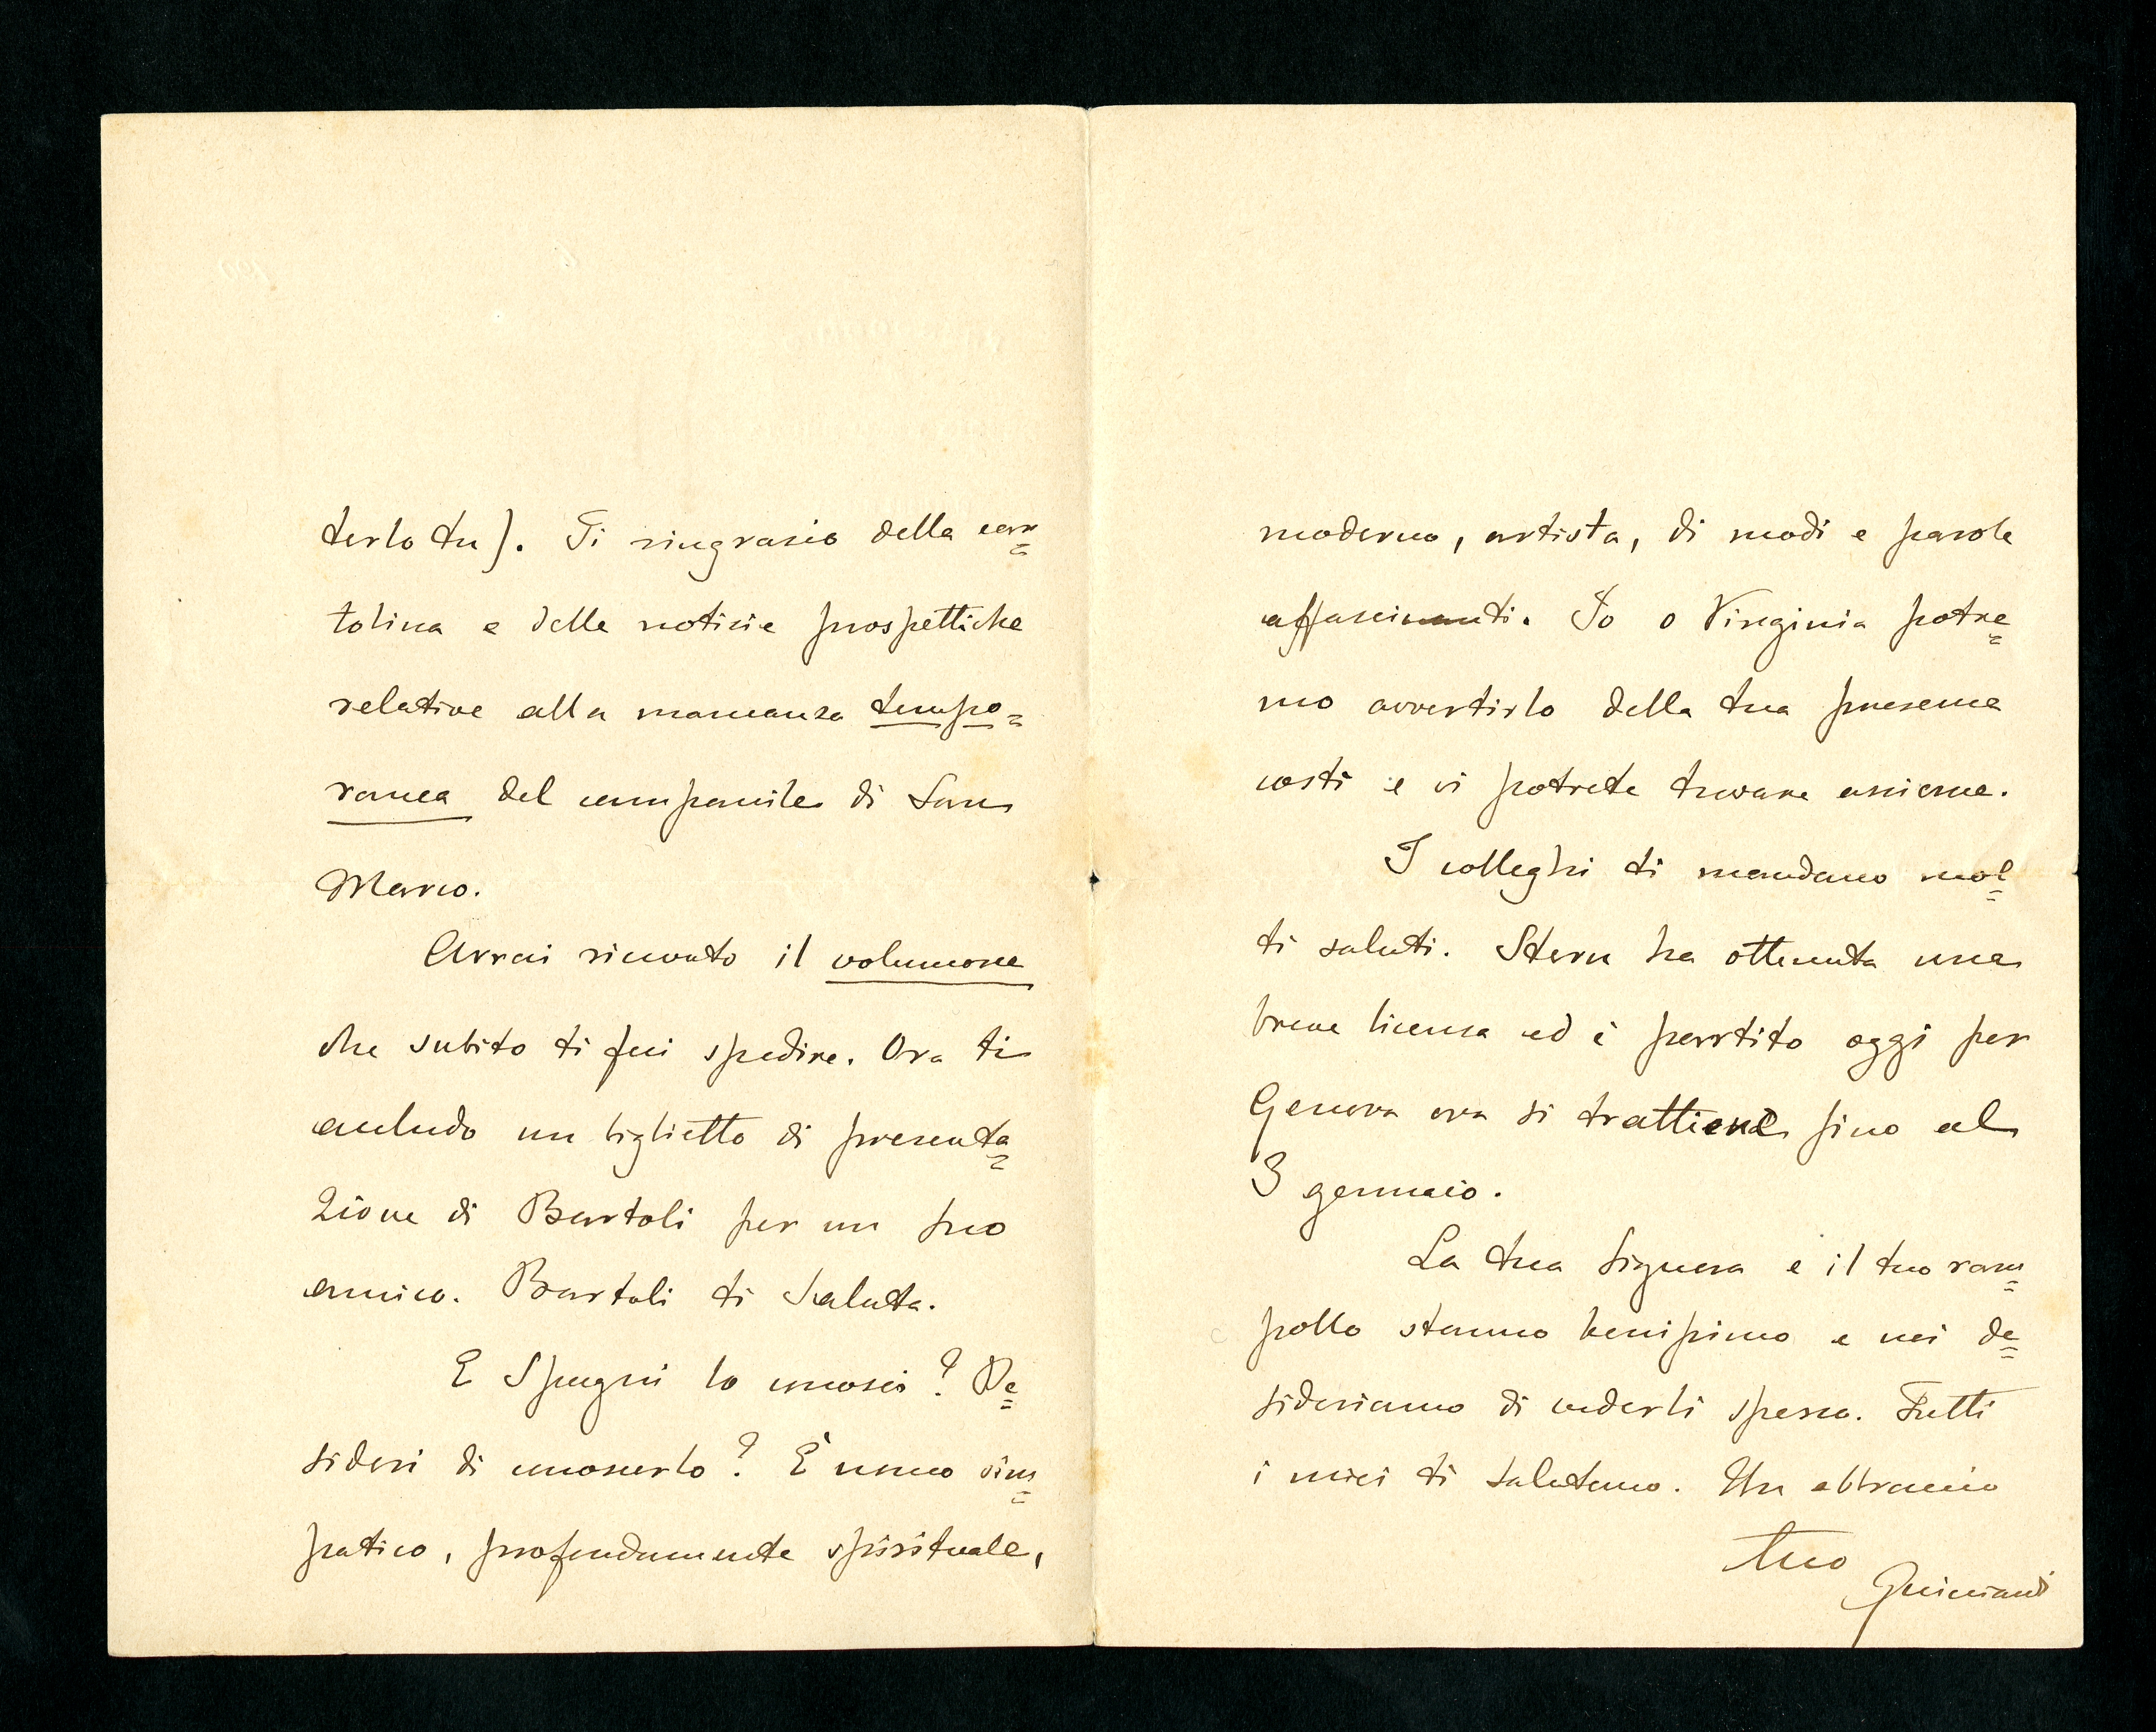 terlo tu). Ti ringrazio della car=
tolina e delle notizie prospettiche
relative alla mancanza tempo=
ranea del campanile di San
Marco.
Avrai ricevuto il volumone
che subito ti feci spedire. Ora ti
accludo un biglietto di presenta=
zione di Bartoli per un suo
amico. Bartoli ti saluta.
E Spugni lo conosci? De=
sideri di conoscerlo? È uomo sim=
patico, profondamente spirituale,
moderno, artista, di modi e parole
affascinanti. Io o Virginia potre=
mo avvertirlo della tua presenza
costì e vi potrete trovare assieme.
I colleghi ti mandano mol=
ti saluti. Stern ha ottenuta una
breve licenza ed è partito oggi per
Genova ove si trattiene fino al
3 gennaio.
La tua Signora e il tuo ram=
pollo stanno benissimo e noi de=
sideriamo di vederli spesso. Tutti
i miei ti salutano. Un abbraccio
tuo